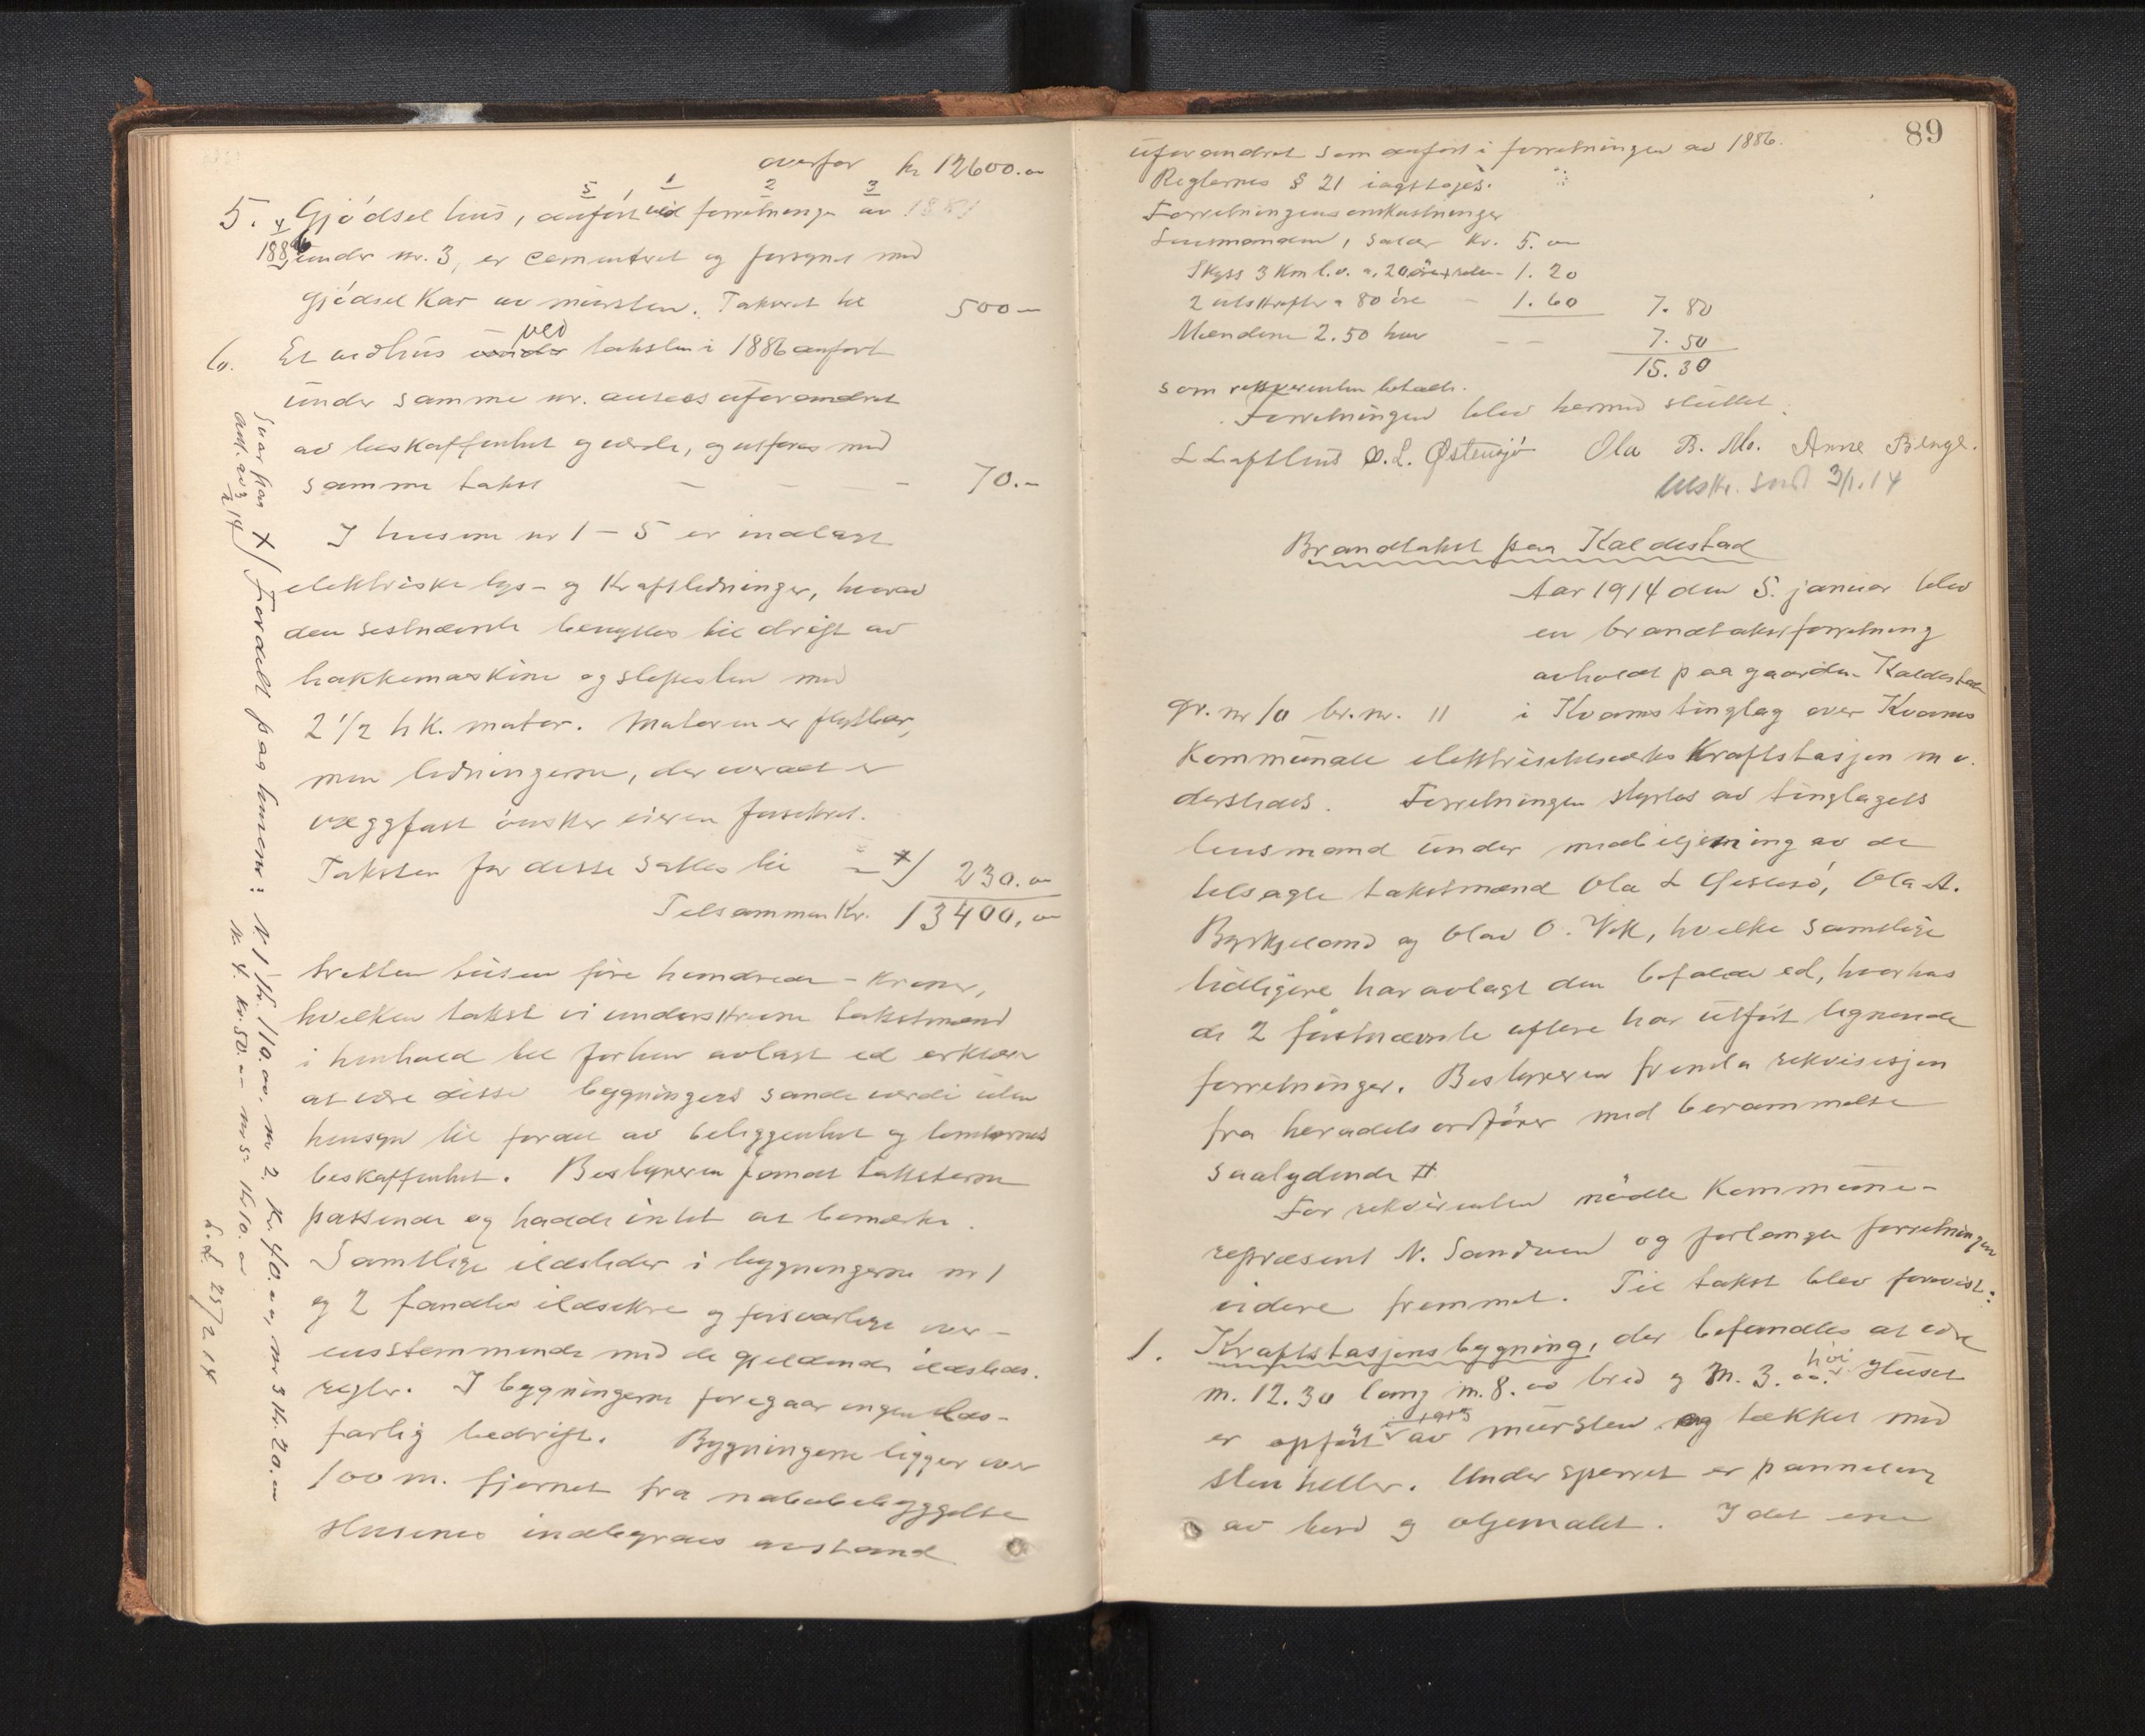 overfør kr 12600.00
5. Gjødselhus, anført ved forretninge av 1881
1886 under nr. 3, er cementeret og forsynet med
gjødselkar av mursten. Taksert til 500 —
6. Et vedhus ved taksten i 1886 anført
under samme nr. ansees uforandret
av beskaffenhet og værdi, og utføres med
samme takst — — — 70.—
I husene nr 1 – 5 er indlagt
elektriske lys- og kraftledninger, hvorav
den sistnævnte benyttes til drift av
hakkemaskine og slipesten med
2 1/2 hk. motor. Motoren er flytbar,
men ledningerne, der overalt er
væggfast ønsker eieren forsikret.
Taksten for disse sættes til = x) 230.00
Tilsammen Kr. 13400,00
tretten tusen fire hundrede – kroner,
hvilken takst vi underskrevne takstmænd
i henhold til forhen avlagt ed erklærer
at være disse bygningers sande værdi uten
hensyn til fordel av beliggenhet og tomternes
beskaffenhet. Bestyreren fandt taksterne
passende og hadde intet at bemærke.
Samtlige ildsteder i bygningerne nr 1
og 2 fandtes ildsikre og forsvarlige over-
ensstemmende med de gjeldende ildsteds-
regler. I bygningerne foregaar ingen ilds-
farlig bedrift. Bygningerne ligger over
100 m. fjernet fra nabobebyggelse
Husenes indbyrdes avstand
x) Fordelt paa husene: Nr 1 Kr. 110.00, nr 2. Kr 40.00, nr 3 Kr. 20.00
nr 4. kr. 50.00 nr 5 Kr 10.00
L.L. 25/2 14
89
uforandret som anført i forretningen av 1886.
Reglernes § 21 iagttages.
Forretningens omkostninger
Lensmanden, salær Kr. 5.00
Skyss 3 Km l.v. a. 20 øre 1.20
2 utskrifter a 80 øre — 1.60 7.80
Mændene 2.50 hver — — 7.50
15.30
som rekvirenten betalte.
Forretningen blev hermed sluttet.
L Lofthus O. L. Østensjø Ola B. Mo. Arne Berge.
Utskr. sendt 3/1.14
Brandtakst paa Kaldestad
Aar 1914 den 5. januar blev
en brandtakstforretning
avholdt paa gaarden Kaldestad
gr. nr 10 br. nr. 11 i Kvams tinglag over Kvams
kommunale elektrisitetsverks Kraftstasjon m v.
dersteds. Forretningen styrtes av tinglagets
lensmand under medbetjening av de
tilsagte takstmænd Ola L , Ola A.
Byrkjeland og Olav O. Vik, hvilke samtlige
tidligere har avlagt den befalede ed, hvorhos
de 2 førstnævnte oftere har utført lignende
forretninger. Bestyreren fremla rekvisisjon
fra heradets ordfører med berammelse
saalydende #
For rekvirenten mødte Kommune-
represent N. Sandven og forlangte forretningen
videre fremmet. Til takst blev forevist:
1. Kraftstasjonsbygning, der befandtes at være
m. 12.30 lang m. 8.00 bred og m. 3.00 høi. Huset
er opført i 1913 av mursten og tækket med
sten heller. Under sperret er panneling
av bord og oljemalet. I det ene